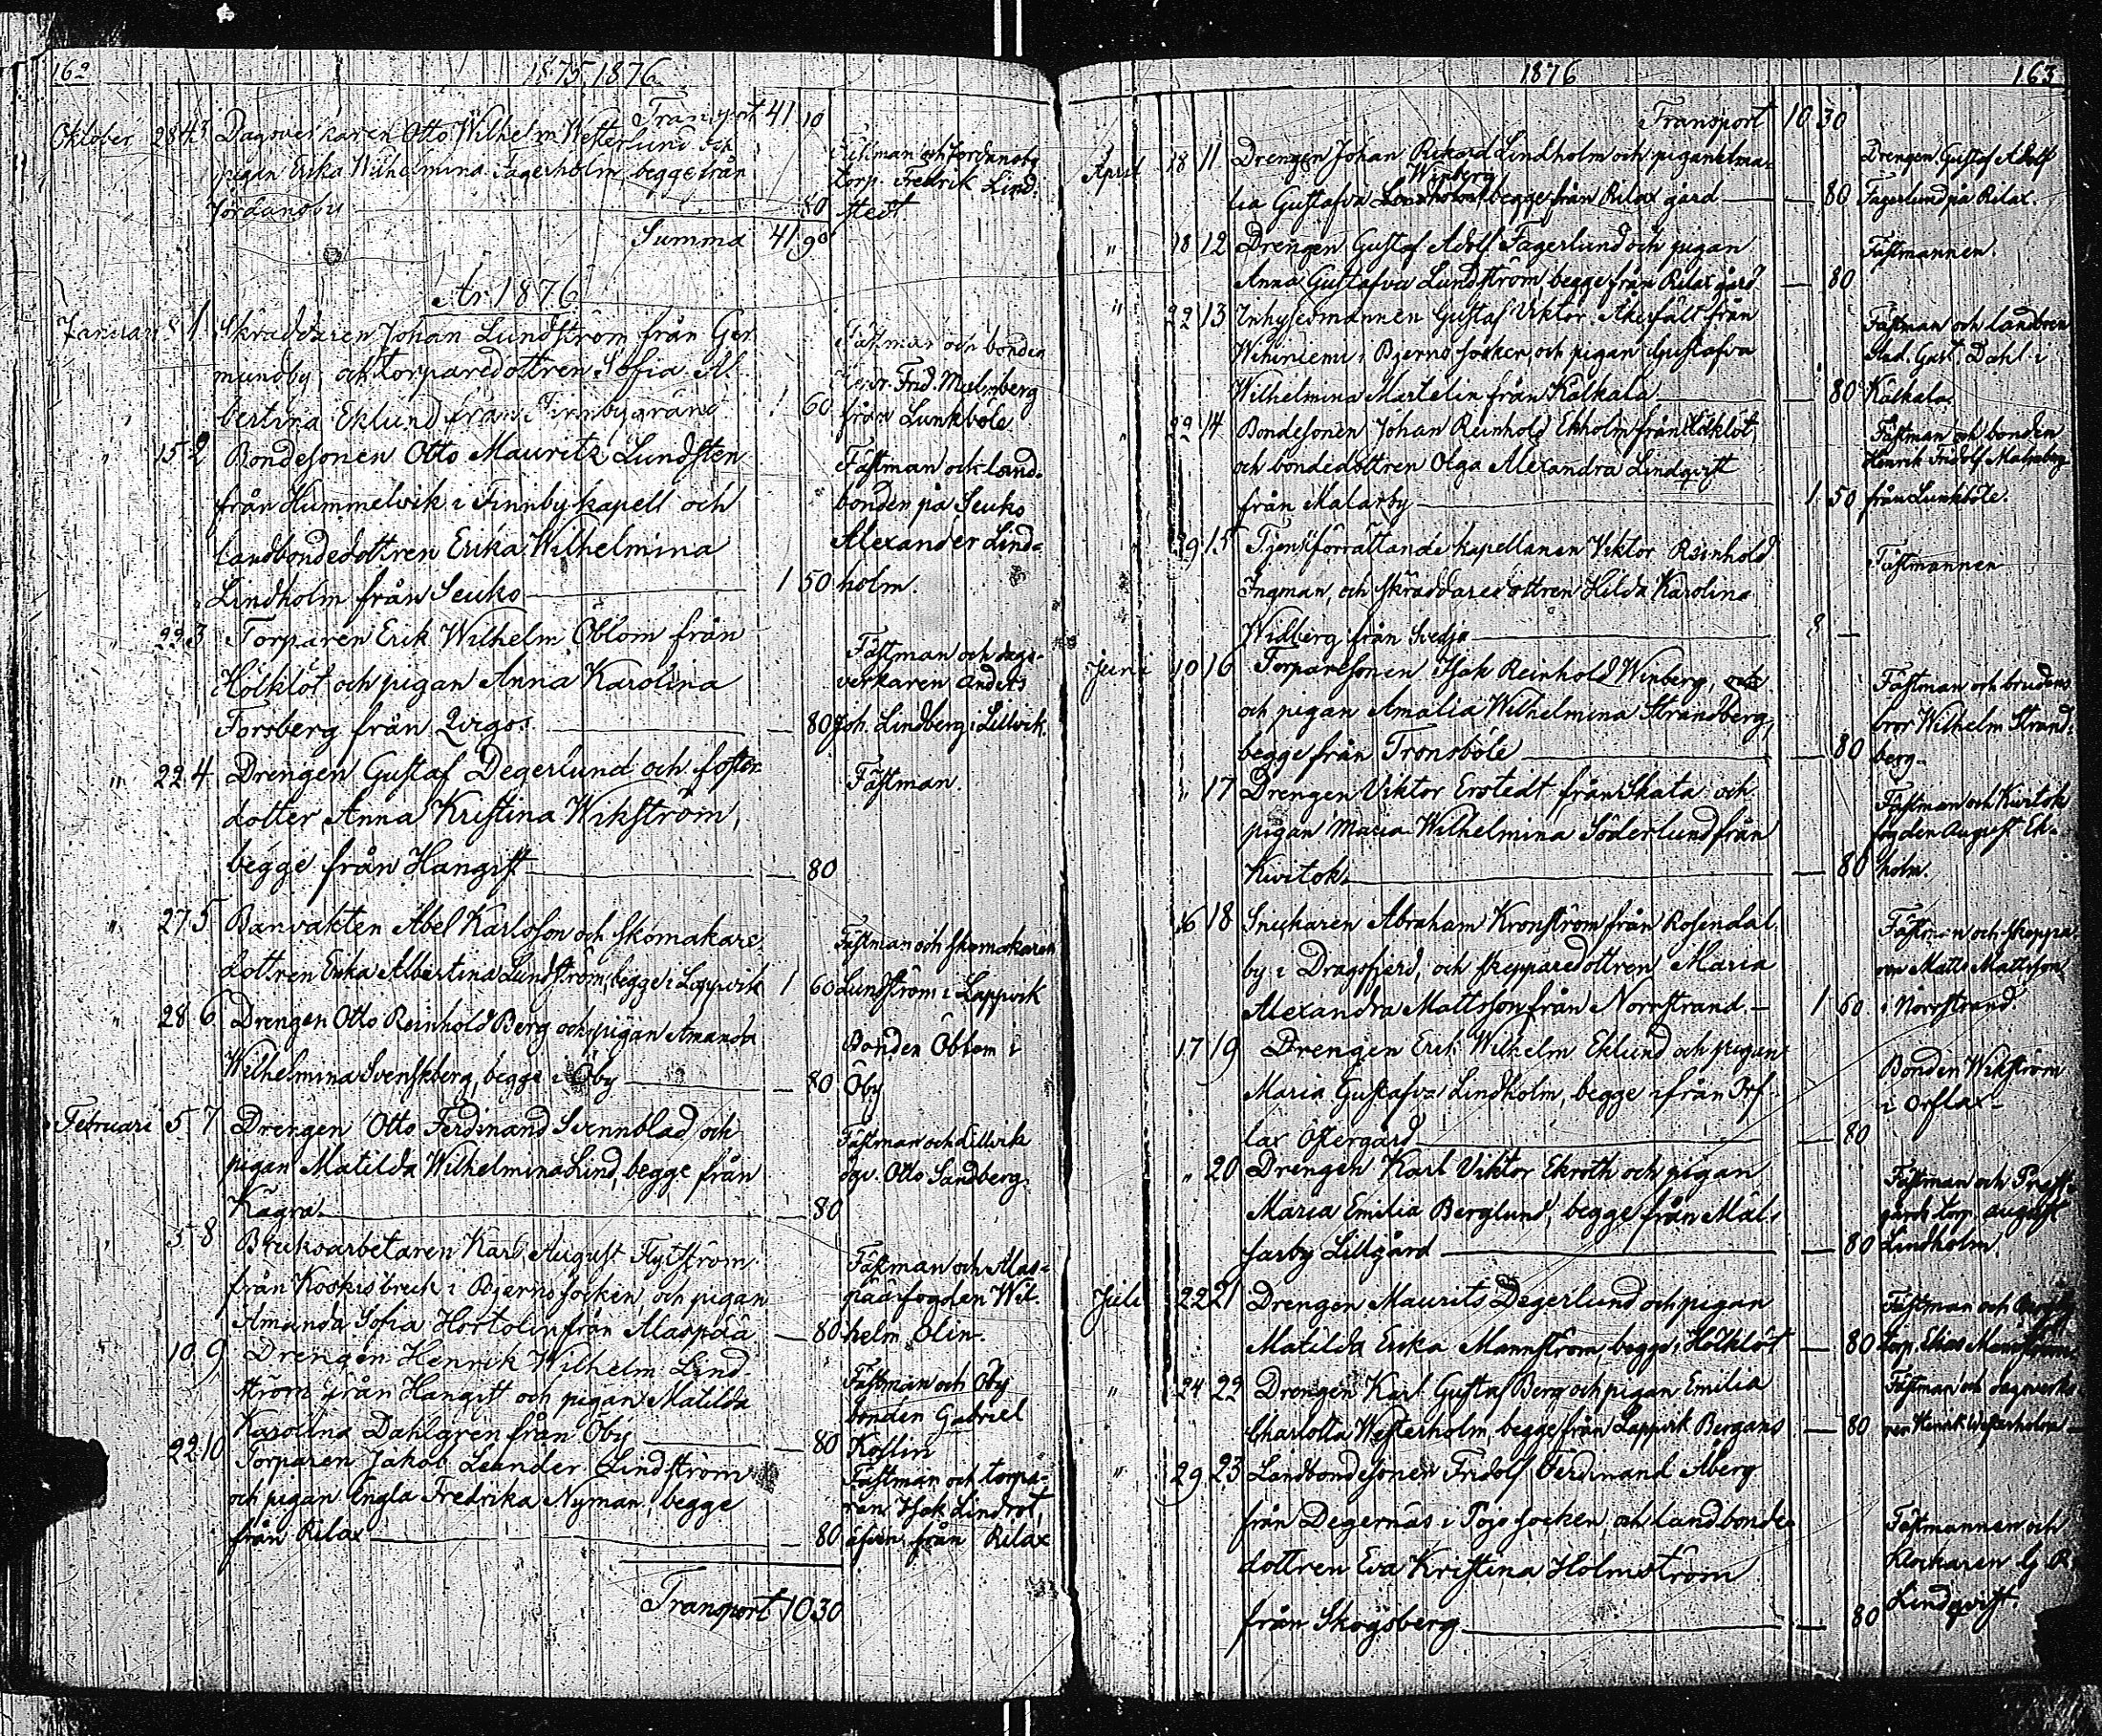 162
1875, 1876
Transport 41 10
Oktober 28 43 Dagsverkaren Otto Wilhelm Wetterlund och
pigan Erika Wilhelmina Lagerholm, begge från
80
Summa 41 90
Fästman och
torp. Fredrik Lind-
stedt
År 1876
Januari 8 1 Skräddaren Johan Lundström från Ger
mundby, och torparedottren Sofia Al
bertina Eklund från Finnby gränd 1 60
Fästman och bonden
Henr. Frid. Malmberg
från Lunkböle
" 15 2 Bondesonen Otto Mauritz Lundsten
från Hummelvik i Finnby kapell och
landbondedottren Erika Wilhelmina
Lindholm från Seuko 1 50
Fästman och land-
bonden på Seuko
Alexander Lind-
holm.
" 22 3 Torparen Erik Wilhelm Öblom från
Hölklöt och pigan Anna Karolina
Forsberg från — 80
Fästman och dags-
verkaren Anders
Joh. Lindberg i Lillvik.
" 22 4 Drengen Gustaf Degerlund och foster-
dotter Anna Kristina Wikström,
begge från Hangist — 80
Fästman.
" 27 5 Banvakten Abel Karlsson och skomakare
dottren Erika Albertina Lundström, begge i Lappvik 1 60
Fästman och skomakaren
Lundström i Lappvik
" 28 6 Drengen Otto Reinhold Berg och pigan Amanda
Wilhelmina Svenskberg, begge i Öby — 80
Bonden Öblom i
Öby
Februari 5 7 Drengen Otto Ferdinand Svennblad och
pigan Matilda Wilhelmina Lind, begge från
Kågra. 80
Fästman och Lillvik
Otto Sandberg.
" 5 8 Bruksarbetaren Karl August Flytström
från Koskis bruk i Bjerno socken, och pigan
Amanda Sofia Hortolin från Alaspää — 80
Fästman och Alas-
pääfogden Wil-
helm Olin.
10 9 Drengen Henrik Wilhelm Lind-
ström från Hangist och pigan Matilda
Karolina Dahlgren från Öby — 80
Fästman och Öby
bonden Gabriel
Koslin
22 10 Torparen Jakob Leander Lindström
och pigan Engla Fredrika Nyman, begge
från Rilax — 80
Fästman och torpa-
ren Isak Lindrot,
äfven från Rilax
Transport 10 30
1876
163
Transport 10 30
April 18 11 Drengen Johan Rikard Lindholm och pigan Ama-
Winberg
lia Gustafva Lindholm begge från Rilax gård — 80
Drengen Gustaf Adolf
Fagerlund på Rilax.
" 18 12 Drengen Gustaf Adolf Fagerlund och pigan
Anna Gustafva Lundström begge från Rilax gård — 80
Fästmannen.
" 22 13 Inhysesmannen Gustaf Viktor Åkerfält från
Wihiniemi i Bjerno socken, och pigan Gustafva
Wilhelmina Martelin från Kälkala — 80
Fästman och landbon-
Gust. Dahl i
Kälkala.
" 22 14 Bondesonen Johan Reinhold Ekholm från Hölklöt,
och bondedottren Olga Alexandra Lindqvist
från Malarby 1 50
Fästman och bonden
Henrik Fridolf Malmberg
från Lunkböle.
" 29 15 Tjensteförrättande kapellanen Viktor Reinhold
Ingman, och skräddaredottren Hilda Karolina
Widberg från Svedja 8 —
Fästmannen
Juni 10 16 Torparesonen Isak Reinhold Winberg,
och pigan Amalia Wilhelmina Strandberg,
begge från Tronsböle — 80
Fästman och brudens
bror Wilhelm Strand-
berg.
" 17 Drengen Viktor Erstedt från Skata och
pigan Maria Wilhelmina Söderlund från
Kvitok. — 80
Fästman och Kvitok
fogden August Ek-
holm.
16 18 Snickaren Abraham Kronström från Rosendal
by i Dragsfjerd, och skepparedottren Maria
Alexandra Mattsson från Norrstrand. — 1 60
Fästman och skeppa-
ren Matts Mattsson
i Norrstrand.
17 19 Drengen Erik Wilhelm Eklund och pigan
Maria Gustafva Lindholm, begge ifrån Orf-
lax Östergård — 80
Bonden Wikström
i Orflax.
" 20 Drengen Karl Viktor Ekroth och pigan
Maria Emilia Berglund, begge från Mål-
sarby Lillgård — 80
Fästman och Prest-
gårds torp. August
Lindholm.
Juli 22 21 Drengen Maurits Degerlund och pigan
Matilda Erika Mannström, begge i Hölklöt — 80
Fästman och
torp. Elias Mannström.
" 24 22 Drengen Karl Gustaf Berg och pigan Emilia
Charlotta Westerholm, begge från Lappvik Bergans — 80
Fästman och dagsverka-
ren Henrik Westerholm
" 29 23 Landbondesonen Fridolf Ferdinand Åberg
från Degernäs i Pojo socken, och landbonde-
dottren Eva Kristina Holmström
från Skogsberg — 80
Fästmannen och
klockaren G. R.
Lindqvist.